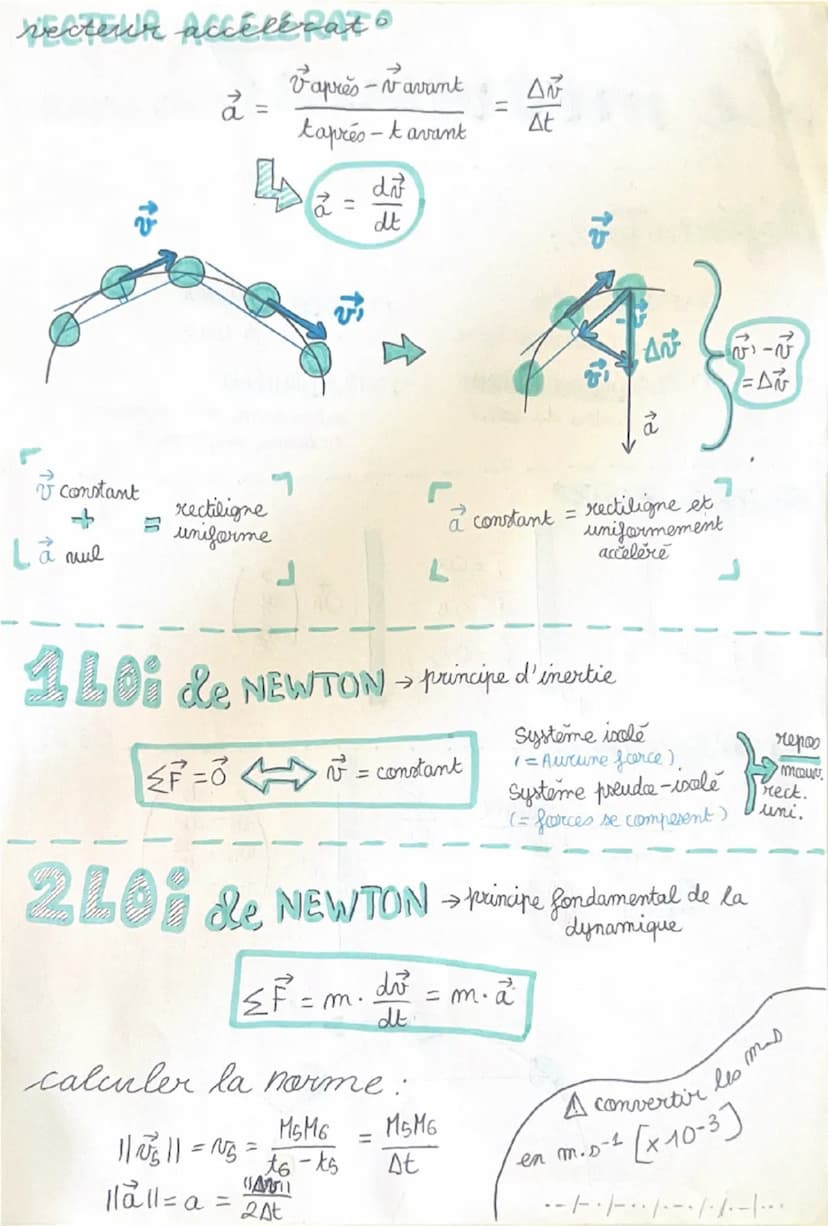 vecteur accélérat°
a⃗ = (v⃗ après - v⃗ avant) / (t après - t avant) = Δv⃗ / Δt
a⃗ = dv⃗ / dt
v⃗
v⃗'
v⃗
-v⃗
v⃗'
Δv⃗
a⃗
v⃗' - v⃗
= Δv⃗
v⃗ constant
+
a⃗ nul
= rectiligne
uniforme
a⃗ constant = rectiligne et
uniformement
accéléré
1 LOi de NEWTON → principe d'inertie
ΣF⃗ = 0⃗ ⇔ v⃗ = constant
Système isolé
(= Aucune force)
Système pseudo-isolé
(= forces se compensent)
repos
mouv.
rect.
uni.
2 LOi de NEWTON → principe fondamental de la
dynamique
ΣF⃗ = m · dv⃗ / dt = m · a⃗
calculer la norme :
||v⃗5|| = v5 = M5M6 / (t6 - t5) = M5M6 / Δt
||a⃗|| = a = ||Δv|| / 2Δt
⚠ convertir les mm/s
en m.s⁻¹ [×10⁻³]